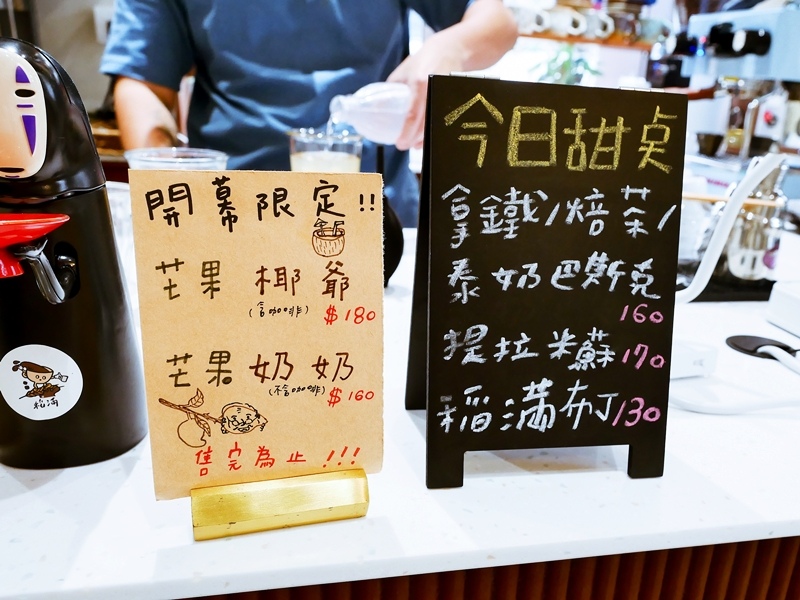 開幕限定!!
芒果 椰爺
(含咖啡) $180
芒果奶奶
(不含咖啡) $160
售完為止!!!
今日甜点
拿鐵/焙茶/
泰奶巴斯克
160
提拉米蘇170
稻滿布丁130